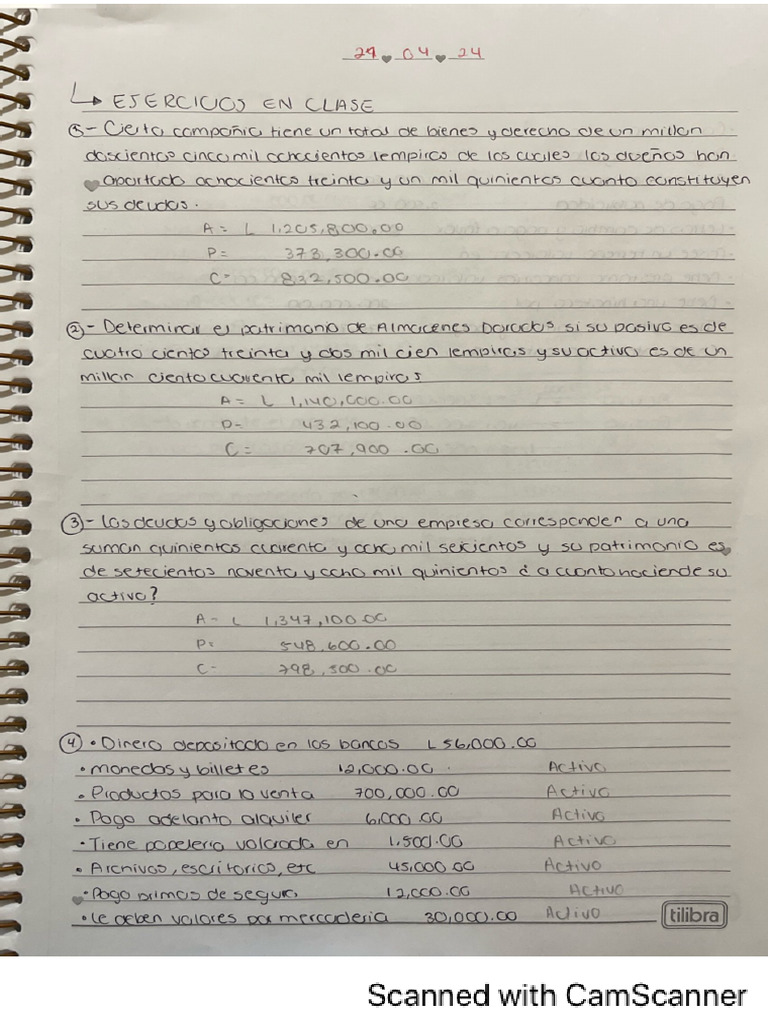 29 04 24
EJERCICIOS EN CLASE
①- Cierta compañia tiene un total de bienes y derecho de un millon
doscientos cinco mil ochocientos lempiras de los cuales los dueños han
aportado ochocientos treinta y un mil quinientos cuanto constituyen
sus deudas.
A = L 1,205,800.00
P = 373,300.00
C = 832,500.00
②- Determinar el patrimonio de Almacenes Dorados si su pasivo es de
cuatro ciento treinta y dos mil cien lempiras y su activo es de un
millon ciento cuarenta mil lempiras
A = L 1,140,000.00
P= 432,100.00
C = 707,900.00
③- Las deudas y obligaciones de una empresa corresponden a una
suman quinientos cuarenta y ocho mil seiscientos y su patrimonio es
de setecientos noventa y ocho mil quinientos ¿ a cuanto haciende su
activo?
A = L 1,347,100.00
P= 548,600.00
C- 798,500.00
④ • Dinero depositado en los bancos L 56,000.00
• monedas y billetes 12,000.00 Activo
• Productos para la venta 700,000.00 Activo
• Pago adelanto alquiler 6,000.00 Activo
• Tiene papeleria valorada en 1,500.00 Activo
• Archivos, escritorios, etc 45,000.00 Activo
• Pago primas de seguro 12,000.00 Activo
• le deben valores por mercaderia 30,000.00 Activo
tilibra
Scanned with CamScanner